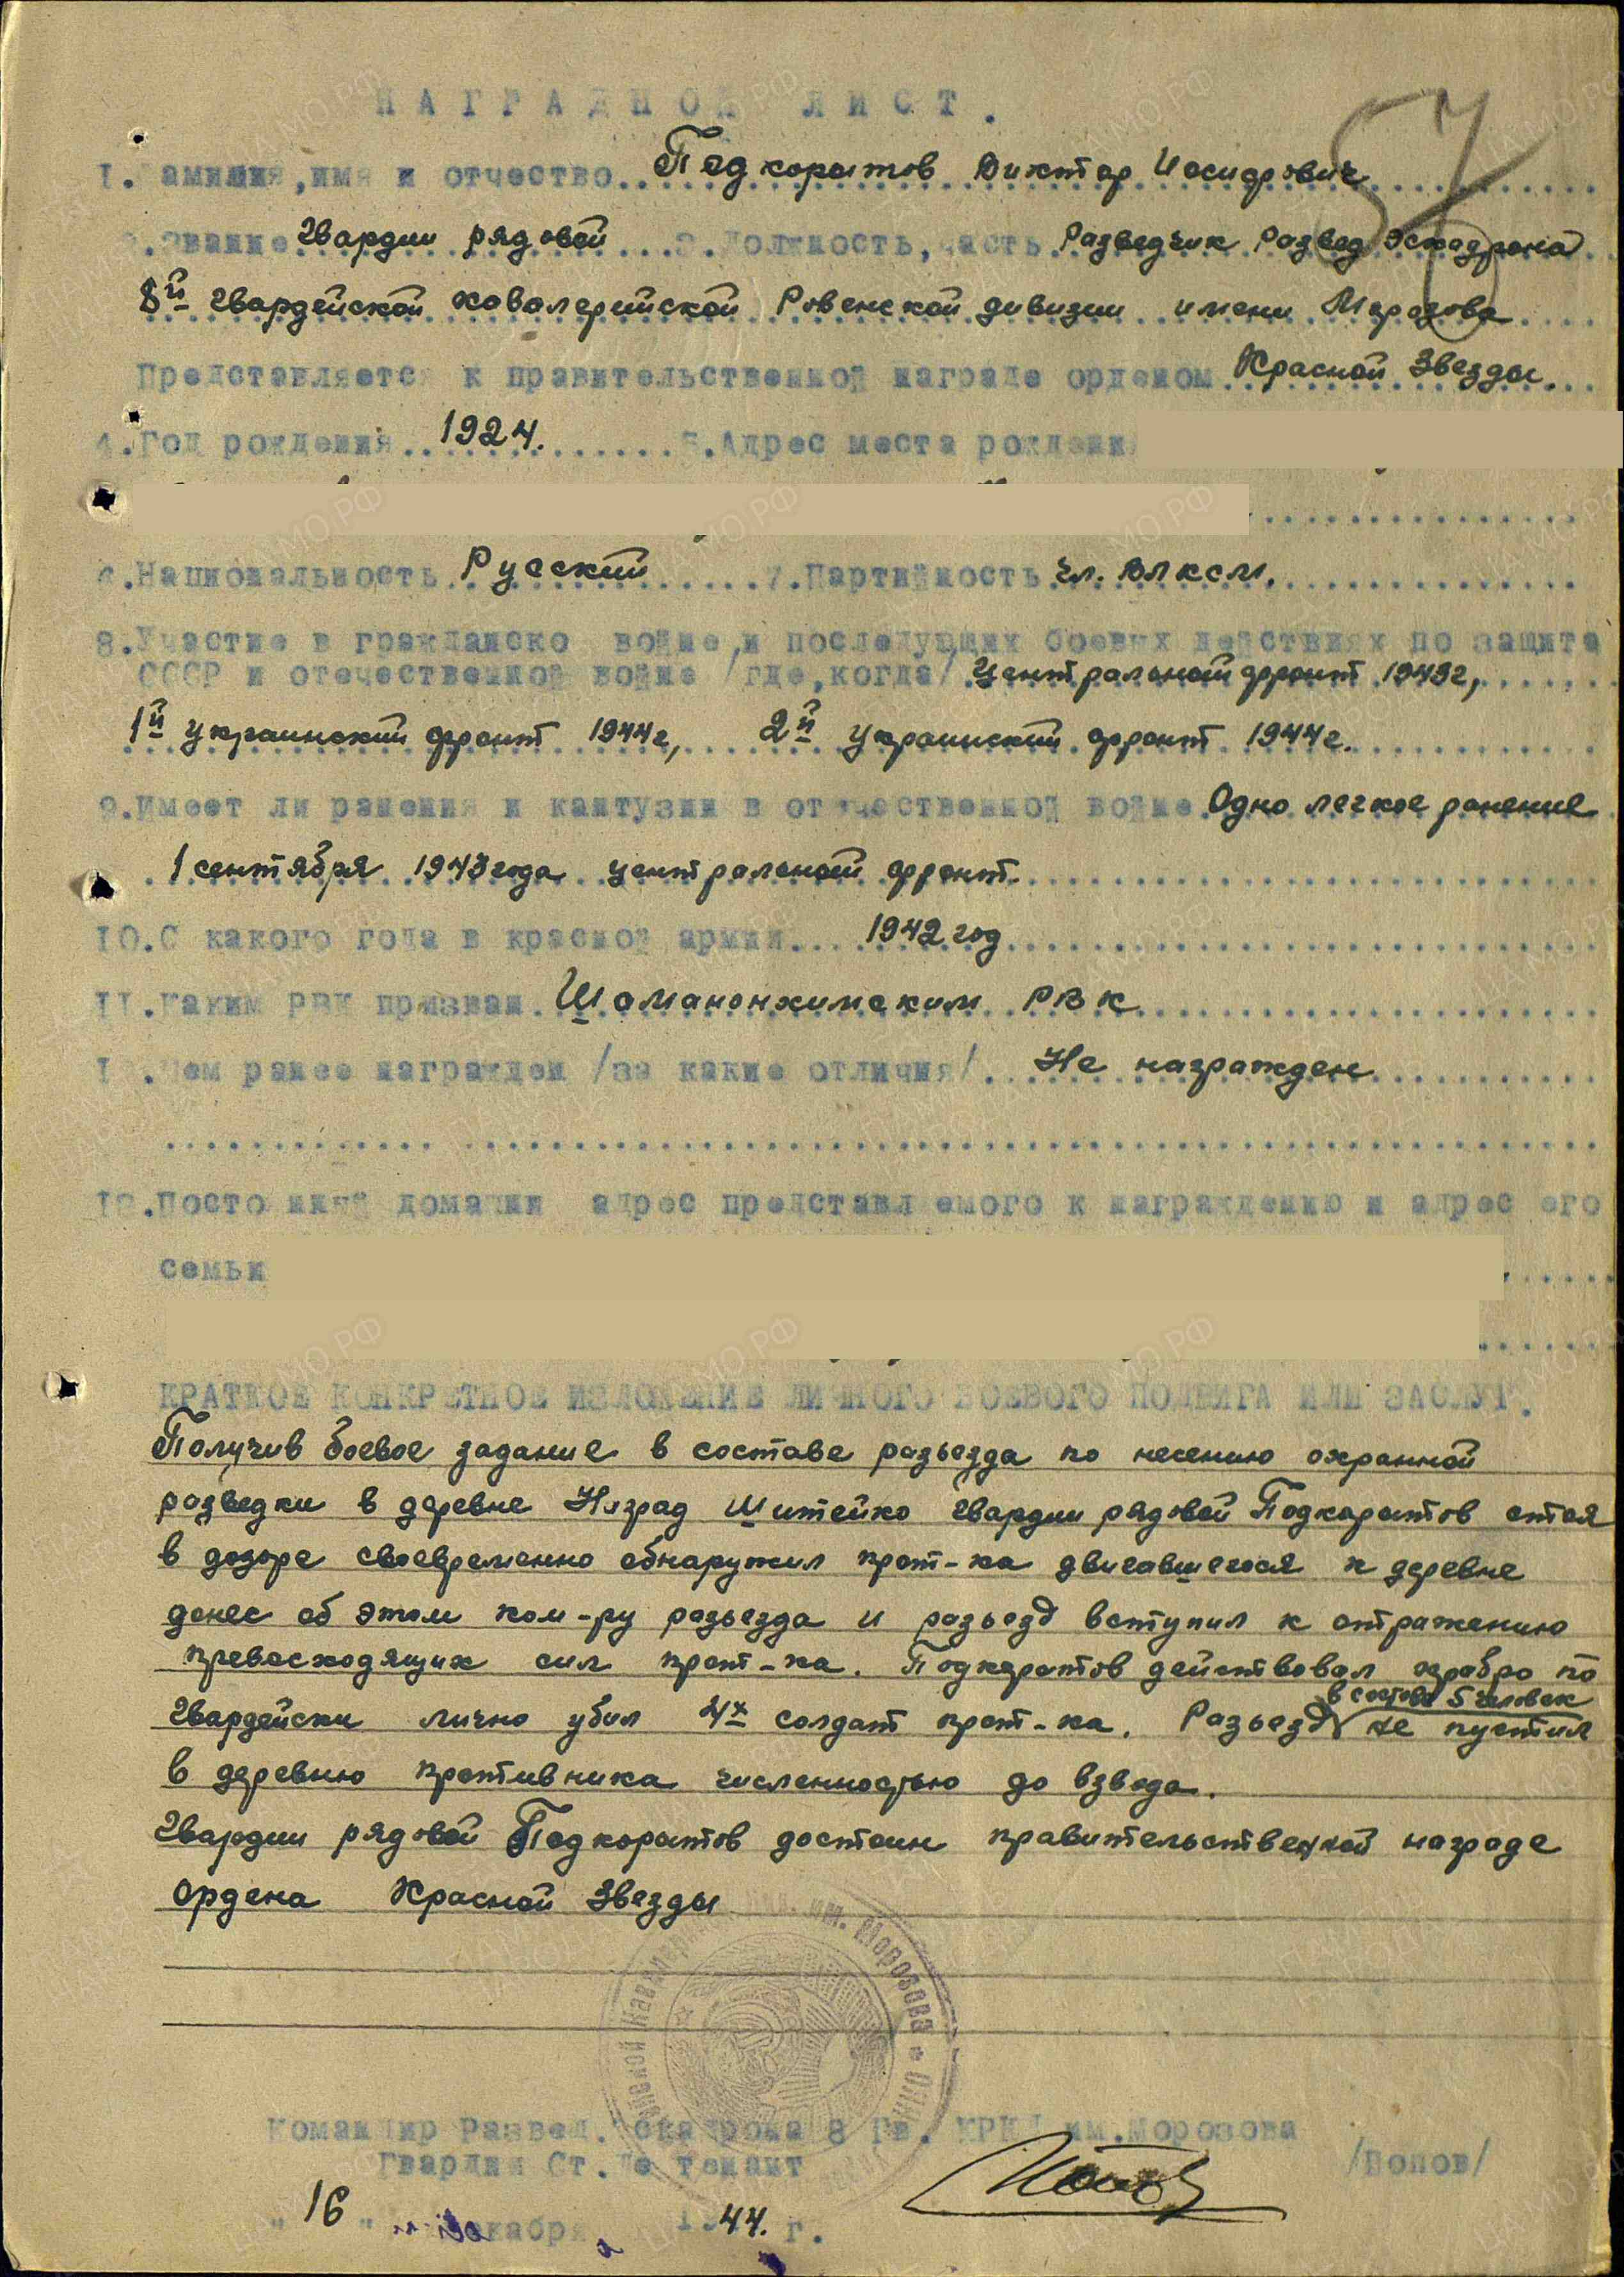 НАГРАДНОЙ ЛИСТ.
1. Фамилия, имя и отчество... Подкорытов Виктор Иосифрович
2. Звание Гвардии рядовой... 3. Должность, часть Разведчик Развед Эскадрона
8й Гвардейской ковалерийской Ровенской дивизии имени Морозова
Представляется к правительственной награде орденом Красной Звезды.
4. Год рождения.. 1924. 5. Адрес места рождени
6. Национальность. Русский 7. Партийность чл. ВЛКСМ.
8. Участие в гражданско войне, и последующих боевых действиях по защите
СССР и отечественной войне /где, когда/ Центральной фронт 1943г,
1й Украинский фронт 1944г, 2й Украинский фронт 1944г.
9. Имеет ли ранения и кантузии в отечественной войне Одно легкое ранение
1 сентября 1943 года центральной фронт.
10. С какого года в красной армии... 1942 год
11. Каким РВК призван. РВК
12. Чем ранее награжден /за какие отличия/. Не награжден
13. Посто нный домашни адрес представл емого к награждению и адрес его
семьи
КРАТКОЕ КОНКРЕТНОЕ ИЗЛОЖЕНИЕ ЛИЧНОГО БОЕВОГО ПОДВИГА ИЛИ ЗАСЛУГ.
Получив боевое задание в составе разьезда по несению охранной
разведки в деревне Шитейко Гвардии рядовой Подкорытов стоя
в дозоре своевременно обнаружил прот-ка двигавшегося к деревне
донес об этом ком-ру разьезда и разьезд вступил к отражению
превосходящих сил прот-ка. Подкорытов действовал храбро по
в составе 5 человек
Гвардейски лично убил 4х солдат прот-ка. Разьезд не пустил
в деревню противника численностью до взвода.
Гвардии рядовой Подкорытов достоин правительственной награде
ордена Красной Звезды
Командир Развед. Эскадрона 8 Гв. КРКД им. Морозова
Гвардии Ст. Ле тенант /Попов/
"16" декабря 1944. г.